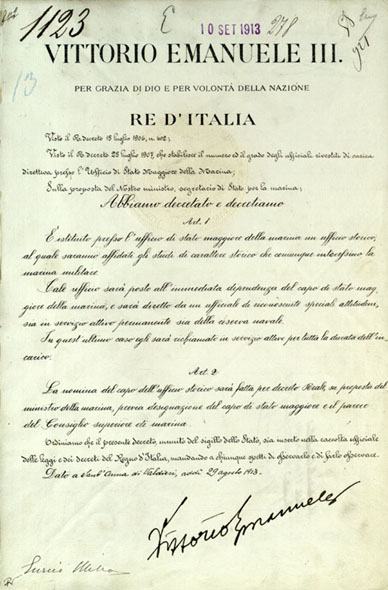 1123
10 SET 1913
278
13
VITTORIO EMANUELE III.
PER GRAZIA DI DIO E PER VOLONTÀ DELLA NAZIONE
RE D'ITALIA
Visto il R. decreto 15 luglio 1906, n. 402;
Visto il R. decreto 25 luglio 1907, che stabilisce il numero ed il grado degli ufficiali rivestiti di carica
direttiva presso l'Ufficio di Stato Maggiore della Marina;
Sulla proposta del Nostro ministro, segretario di Stato per la marina;
Abbiamo decretato e decretiamo
Art. 1
È istituito presso l'ufficio di stato maggiore della marina un ufficio storico,
al quale saranno affidati gli studi di carattere storico che comunque interessino la
marina militare.
Tale ufficio sarà posto all'immediata dipendenza del capo di stato mag
giore della marina, e sarà diretto da un ufficiale di riconosciute speciali attitudini,
sia in servizio attivo permanente sia della riserva navale.
In quest'ultimo caso egli sarà richiamato in servizio attivo per tutta la durata dell'in
carico.
Art. 2
La nomina del capo dell'ufficio storico sarà fatta per decreto Reale, su proposta del
ministro della marina, previa designazione del capo di stato maggiore e il parere
del Consiglio superiore di marina.
Ordiniamo che il presente decreto, munito del sigillo dello Stato, sia inserto nella raccolta ufficiale
delle leggi e dei decreti del Regno d'Italia, mandando a chiunque spetti di osservarlo e di farlo osservare.
Dato a Sant'Anna di Valdieri, addì 29 agosto 1913.
Vittorio Emanuele